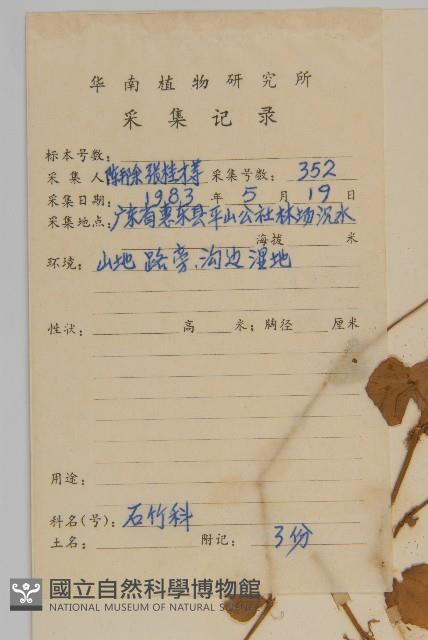 华南植物研究所
采集记录
标本号数:
采集人 陈邦余 张桂才等 采集号数: 352
采集日期: 1983 年 5 月 19 日
采集地点: 广东省惠东县平山公社林场沉水
海拔 米
环境: 山地路旁.沟边湿地
性状: 高 米; 胸径 厘米
用途:
科名(号): 石竹科
土名: 附记: 3份
國立自然科學博物館
NATIONAL MUSEUM OF NATURAL SCIENCE